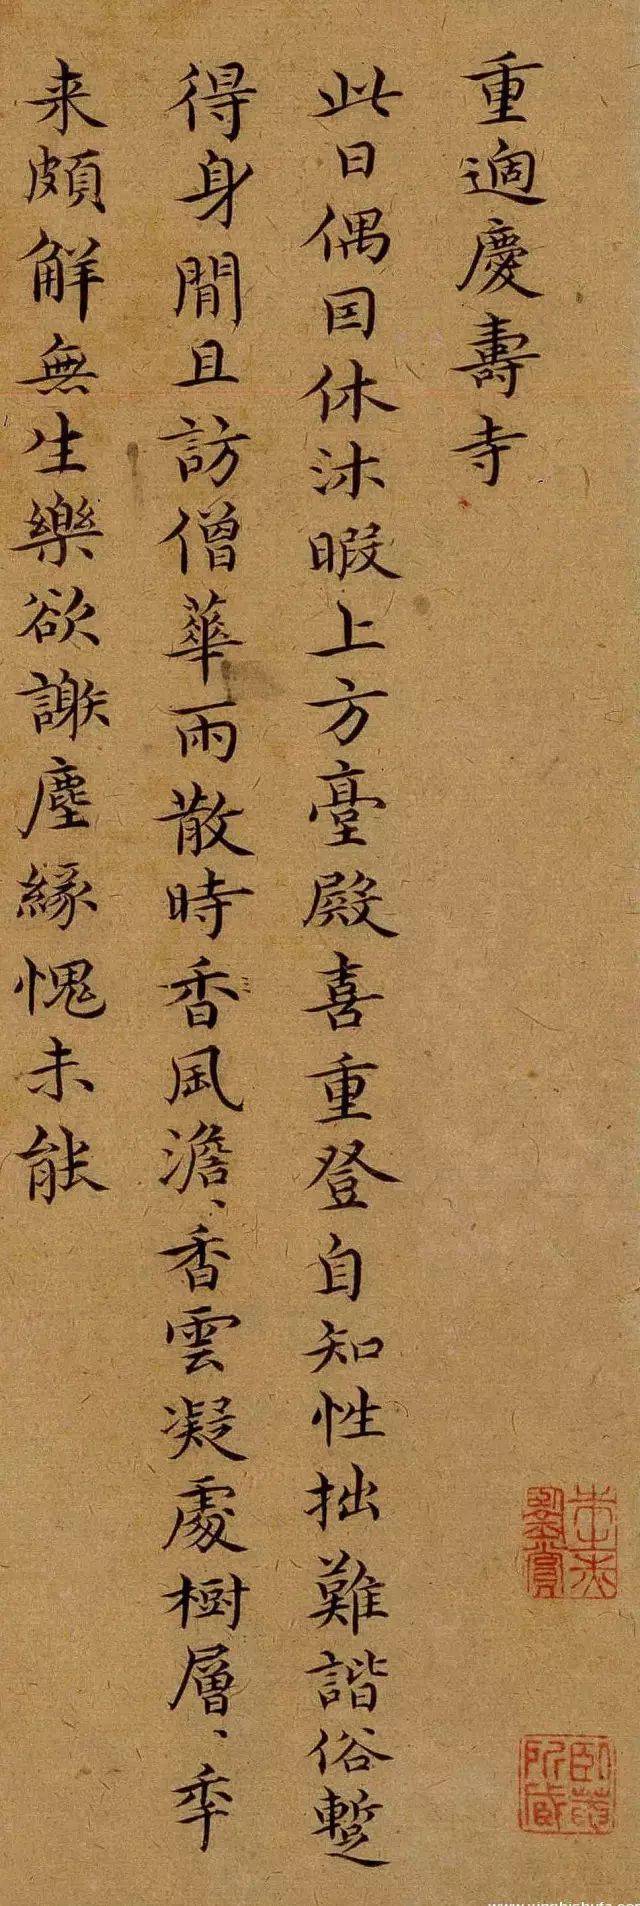 重過慶壽寺
此日偶因休沐暇上方臺殿喜重登自知性拙難諧俗蹔
得身閒且訪僧華雨散時香風澹、香雲凝處樹層、年
来頗解無生樂欲謝塵緣愧未能